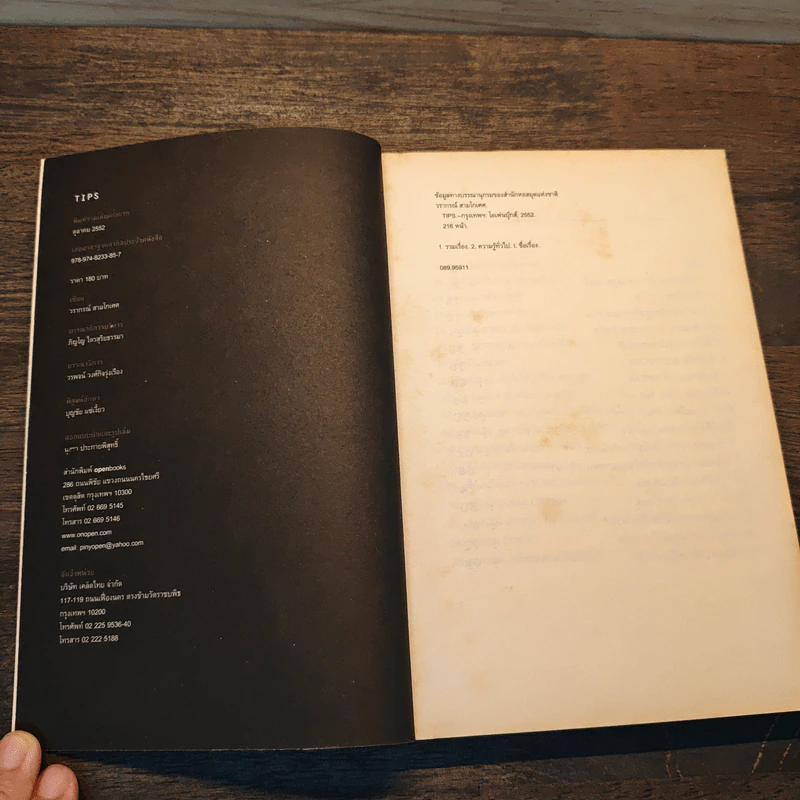 TIPS
พิมพ์รวมเล่มครั้งแรก
ตุลาคม 2552
เลขมาตรฐานสากลประจำหนังสือ
978-974-8233-85-7
ราคา 180 บาท
เขียน
วรากรณ์ สามโกเศศ
บรรณาธิการบริหาร
ภิญโญ ไตรสุริยธรรมา
บรรณาธิการ
วรพจน์ วงศ์กิจรุ่งเรือง
พิสูจน์อักษร
บุญชัย แซ่เงี้ยว
ออกแบบปกและรูปเล่ม
ประกายพิสุทธิ์
สำนักพิมพ์ openbooks
286 ถนนพิชัย แขวงถนนนครไชยศรี
เขตดุสิต กรุงเทพฯ 10300
โทรศัพท์ 02 669 5145
โทรสาร 02 669 5146
www.onopen.com
email: pinyopen@yahoo.com
จัดจำหน่าย
บริษัท เคล็ดไทย จำกัด
117-119 ถนนเฟื่องนคร ตรงข้ามวัดราชบพิธ
กรุงเทพฯ 10200
โทรศัพท์ 02 225 9536-40
โทรสาร 02 222 5188
ข้อมูลทางบรรณานุกรมของสำนักหอสมุดแห่งชาติ
วรากรณ์ สามโกเศศ.
TIPS.--กรุงเทพฯ: โอเพ่นบุ๊กส์, 2552.
216 หน้า.
1. รวมเรื่อง. 2. ความรู้ทั่วไป. I. ชื่อเรื่อง.
089.95911